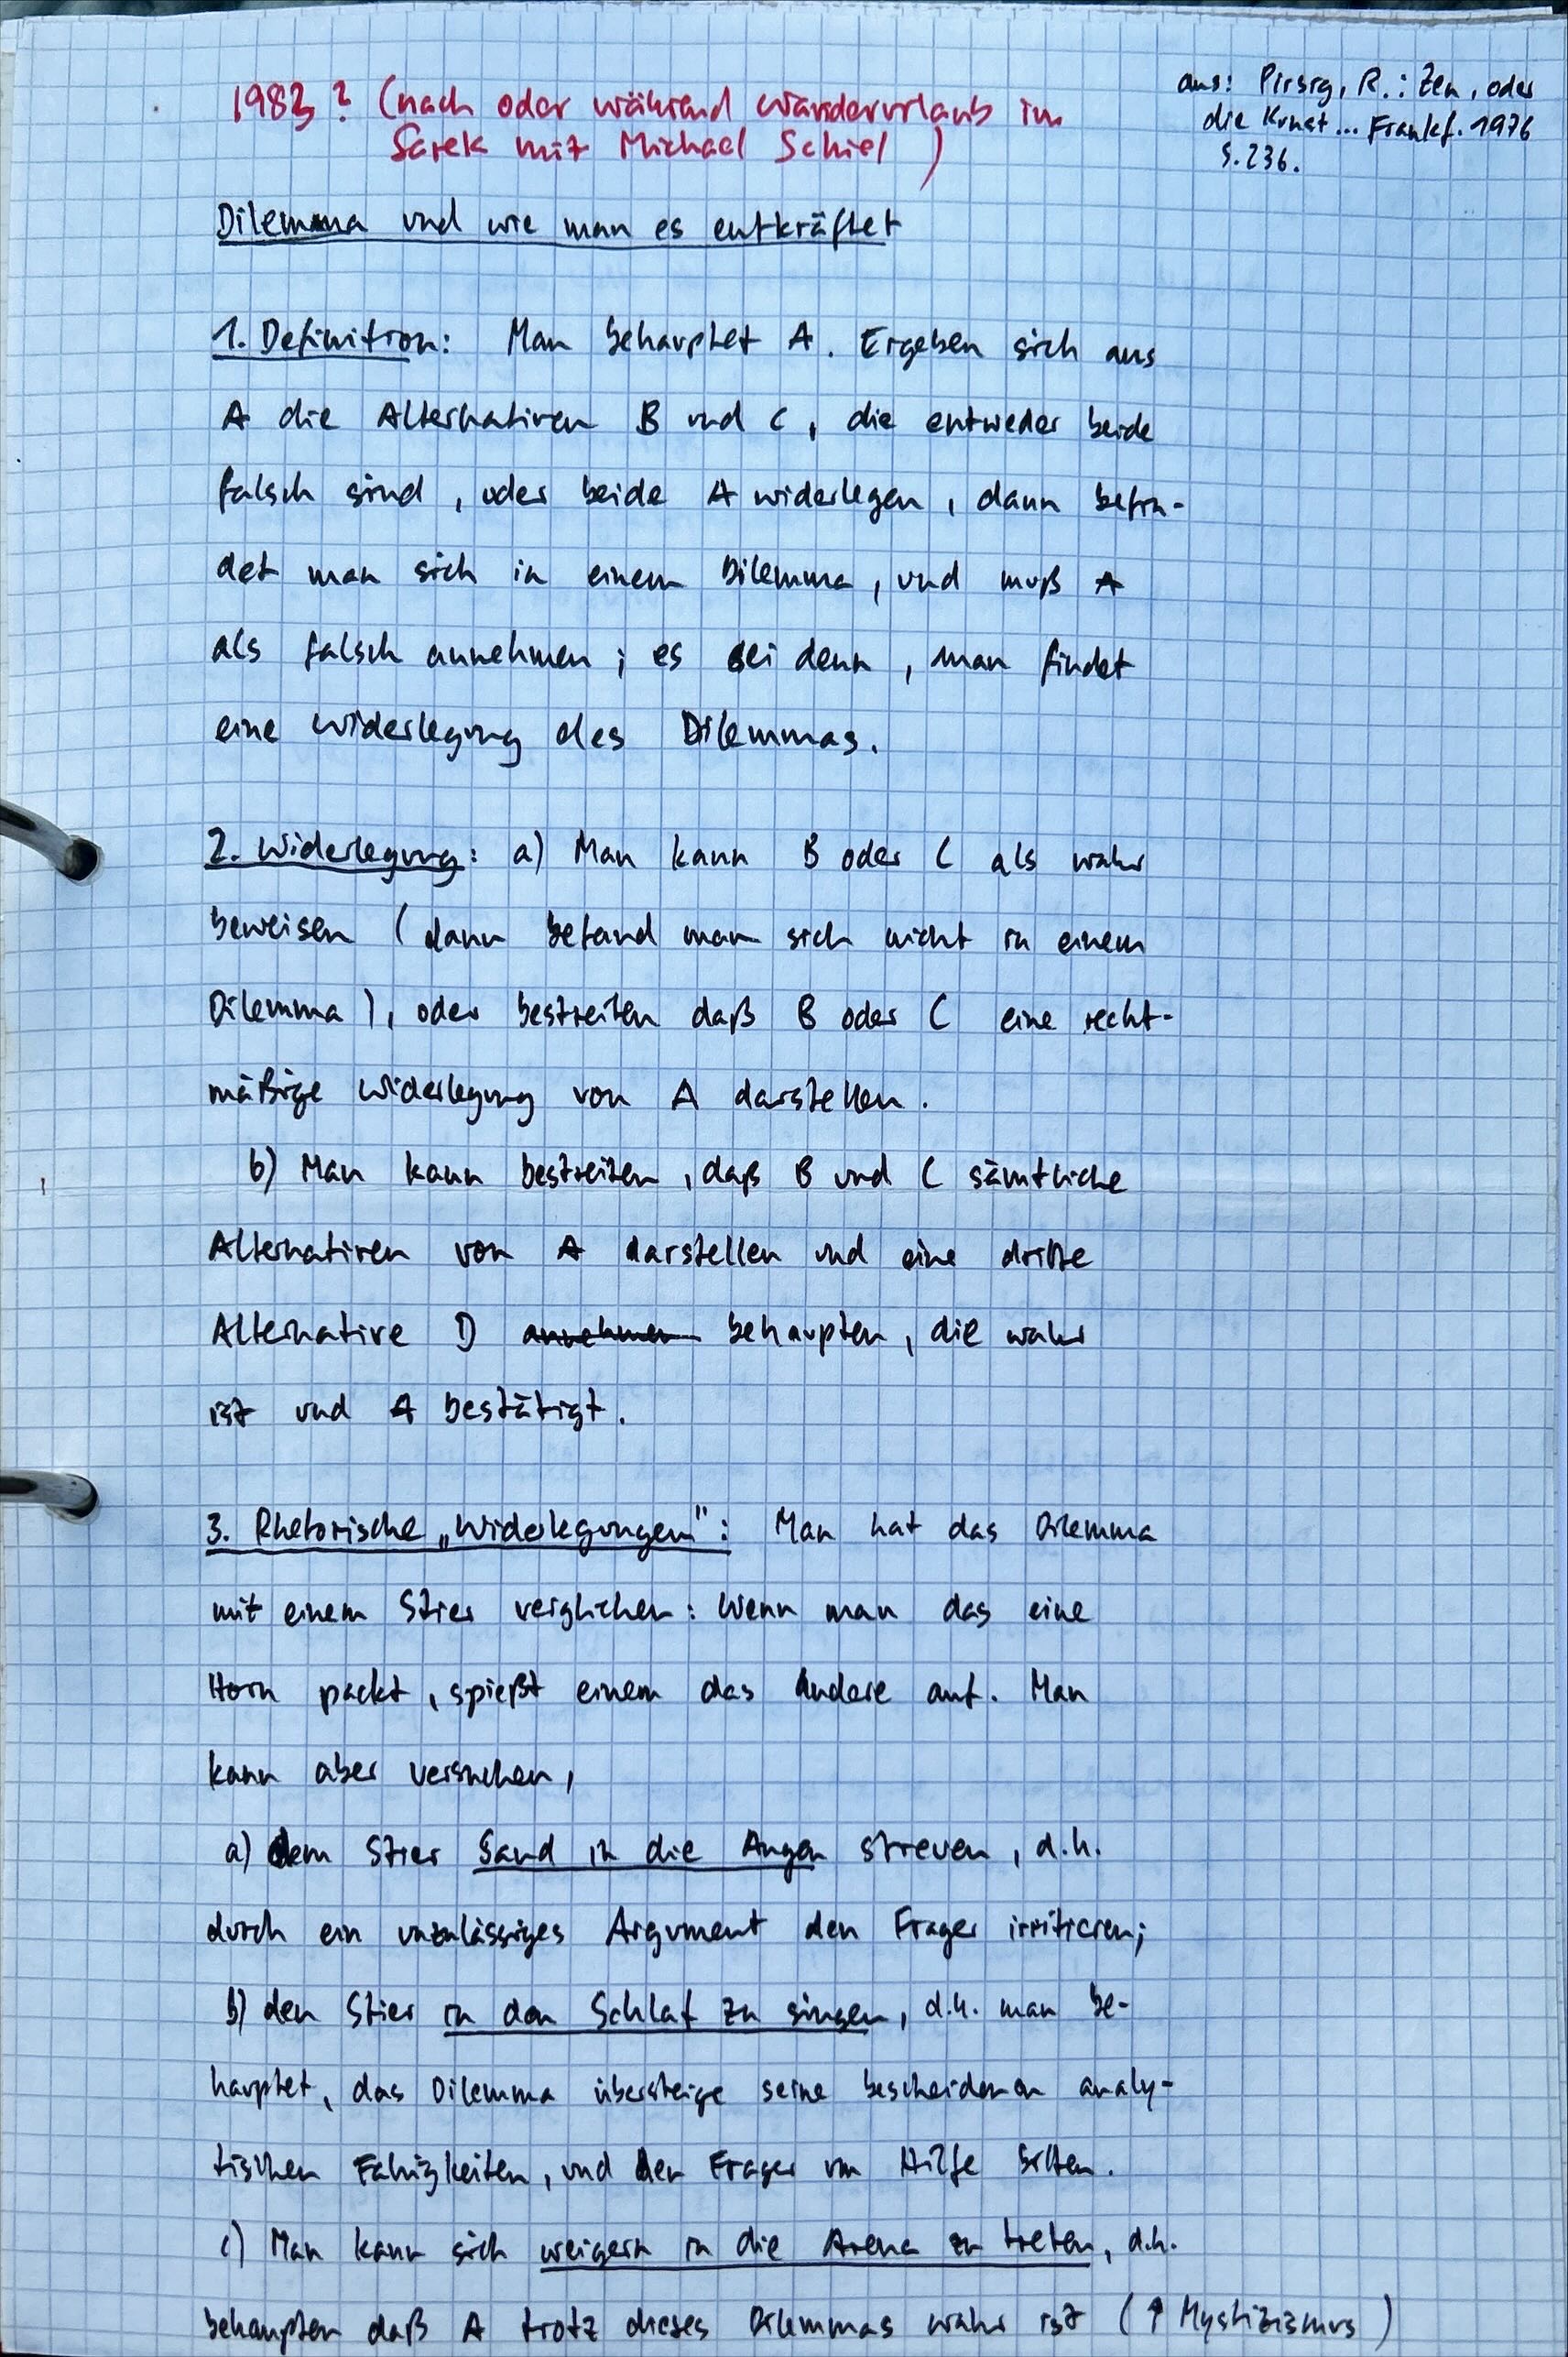 1983? (nach oder während Wanderurlaub im
Sarek mit Michael Schiel)
aus: Pirsig, R.: Zen, oder
die Kunst... Frankf. 1976
S. 236.
Dilemma und wie man es entkräftet
1. Definition: Man behauptet A. Ergeben sich aus
A die Alternativen B und C, die entweder beide
falsch sind, oder beide A widerlegen, dann befin-
det man sich in einem Dilemma, und muß A
als falsch annehmen; es sei denn, man findet
eine Widerlegung des Dilemmas.
2. Widerlegung: a) Man kann B oder C als wahr
beweisen (dann befand man sich nicht in einem
Dilemma), oder bestreiten daß B oder C eine recht-
mäßige Widerlegung von A darstellen.
b) Man kann bestreiten, daß B und C sämtliche
Alternativen von A darstellen und eine dritte
Alternative D annehmen behaupten, die wahr
ist und A bestätigt.
3. Rhetorische „Widerlegungen": Man hat das Dilemma
mit einem Stier verglichen: Wenn man das eine
Horn packt, spießt einem das andere auf. Man
kann aber versuchen,
a) dem Stier Sand in die Augen streuen, d.h.
durch ein unzulässiges Argument den Frager irritieren;
b) den Stier in den Schlaf zu singen, d.h. man be-
hauptet, das Dilemma übersteige seine bescheidenen analy-
tischen Fähigkeiten, und den Frager um Hilfe bitten.
c) Man kann sich weigern in die Arena zu treten, d.h.
behaupten daß A trotz dieses Dilemmas wahr ist (↑ Mystizismus)